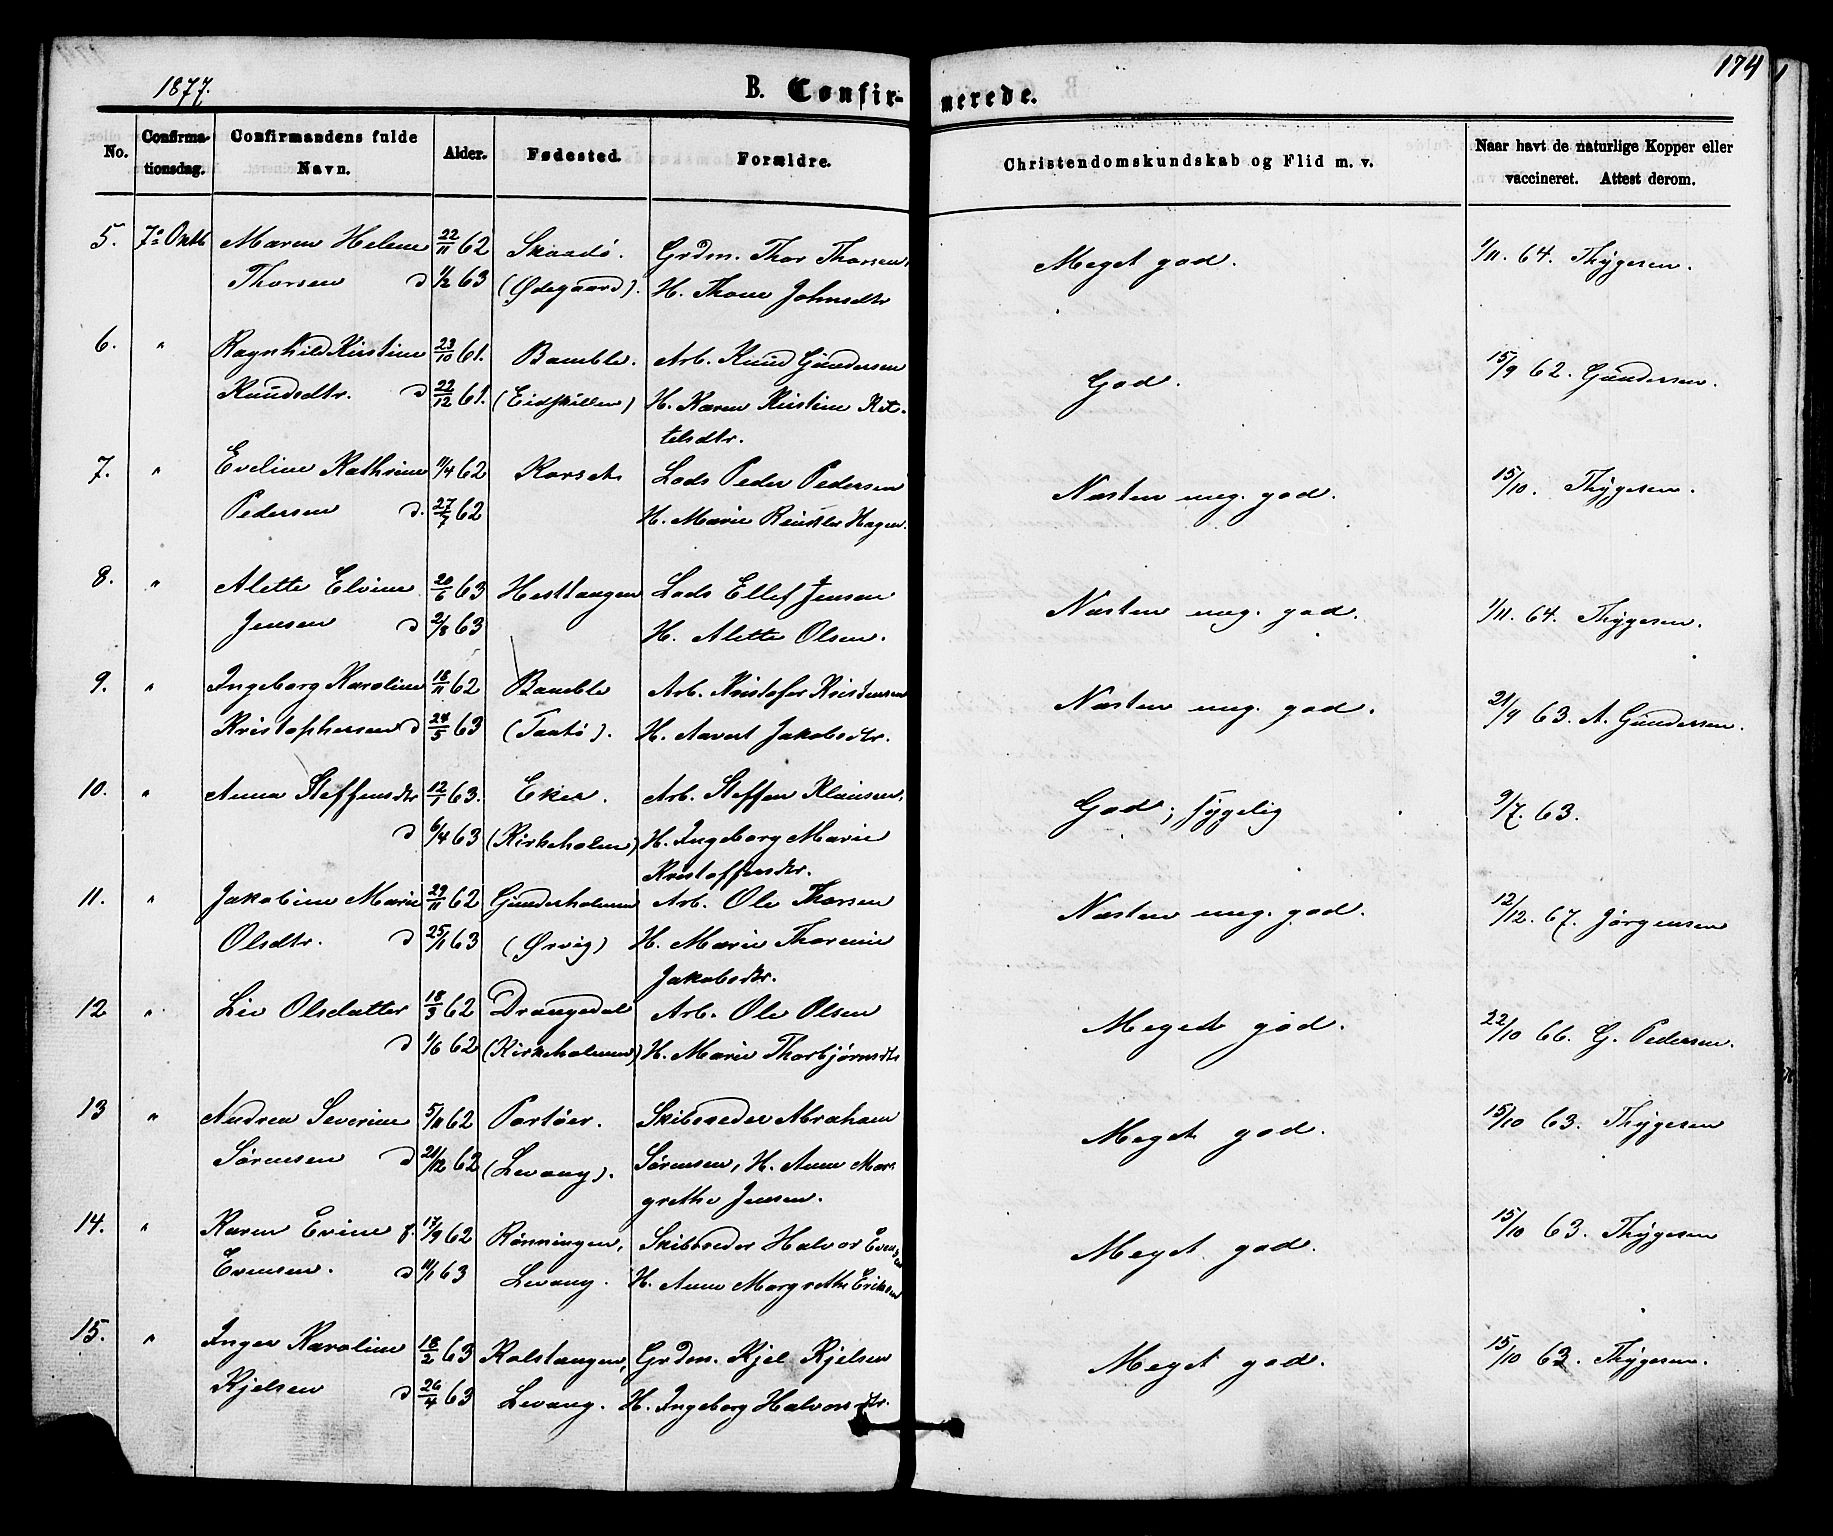 1877.
B. Confir-
merede.
174
No.
Confirma-
tionsdag.
Confirmandens fulde
Navn.
Alder.
Fødested.
Forældre.
Christendomskundskab og Flid m. v.
Naar havt de naturlige Kopper eller
vaccineret. Attest derom.
5. 7de Oktb Maren Helene 22/11 62 Skaadö. Grdm. Thor Thorsen, Meget god. 1/11. 64. Thygesen.
Thorsen d 1/2 63 (Ødegaard). H. Thone Johnsdtr
6. " Ragnhild Kirstine 23/10 61. Bamble. Arb. Knud Gundersen God. 15/9 62. Gundersen.
Knudsdtr. d 22/12 61. (Eidskillen) H. Karen Kirstine Ket-
telsdtr.
7. " Eveline Kathrine 11/4 62 Korset Lods Peder Pedersen Næsten meg. god. 15/10. Thygesen.
Pedersen d. 27/7 62 H. Marie Hagen.
8. " Alette Elvine 20/6 63 Hesttangen Lods Ellef Jensen Næsten meg. god. 1/11. 64. Thygesen.
Jensen d 2/8 63 H. Alette Olsen.
9. " Ingeborg Karoline 18/11 62 Bamble Arb. Kristofer Kristensen Næsten meg. god. 21/9 63. A. Gundersen.
Kristophersen d 24/5 63 (Taatö). H. Aavert Jakobsdtr.
10. " Anna Steffensdtr 12/1 63. Eker. Arb. Steffen Klausen, God; sygelig 9/7. 63.
d 6/4 63 (Kirkeholmen) H. Ingeborg Marie
Kristoffersdtr.
11. " Jakobine Marie 29/11 62 Gunderholmen Arb. Ole Thorsen Næsten meg. god. 12/12. 67. Jørgensen
Olsdtr. d 25/1 63 (Ørvig) H. Marie Thorine
Jakobsdtr.
12 " Liv Olsdatter 18/3 62 Drangedal Arb. Ole Olsen Meget god. 22/10 66. G. Pedersen.
d 1/6 62 (Kirkeholmen) H. Marie Thorbjørnsdtr
13 " Andrea Severine 5/11 62 Portöer. Skibsreder Abraham Meget god. 15/10 63. Thygesen
Sörensen d 21/12 62 (Levang). Sörensen, H. Anne Mar-
grethe Jensen.
14. " Karen Evine f. 17/9 62 Rönningen, Skibsreder Halvor Evensen Meget god. 15/10 63. Thygesen
Evensen. d 11/1 63 Levang. H. Anne Margrethe Eriksen
15. " Inger Karoline 18/2 63 Kolstangen, Grdm. Kjel Kjelsen Meget god. 15/10 63. Thygesen.
Kjelsen d 26/4 63 Levang. H. Ingeborg Halvorsdtr.